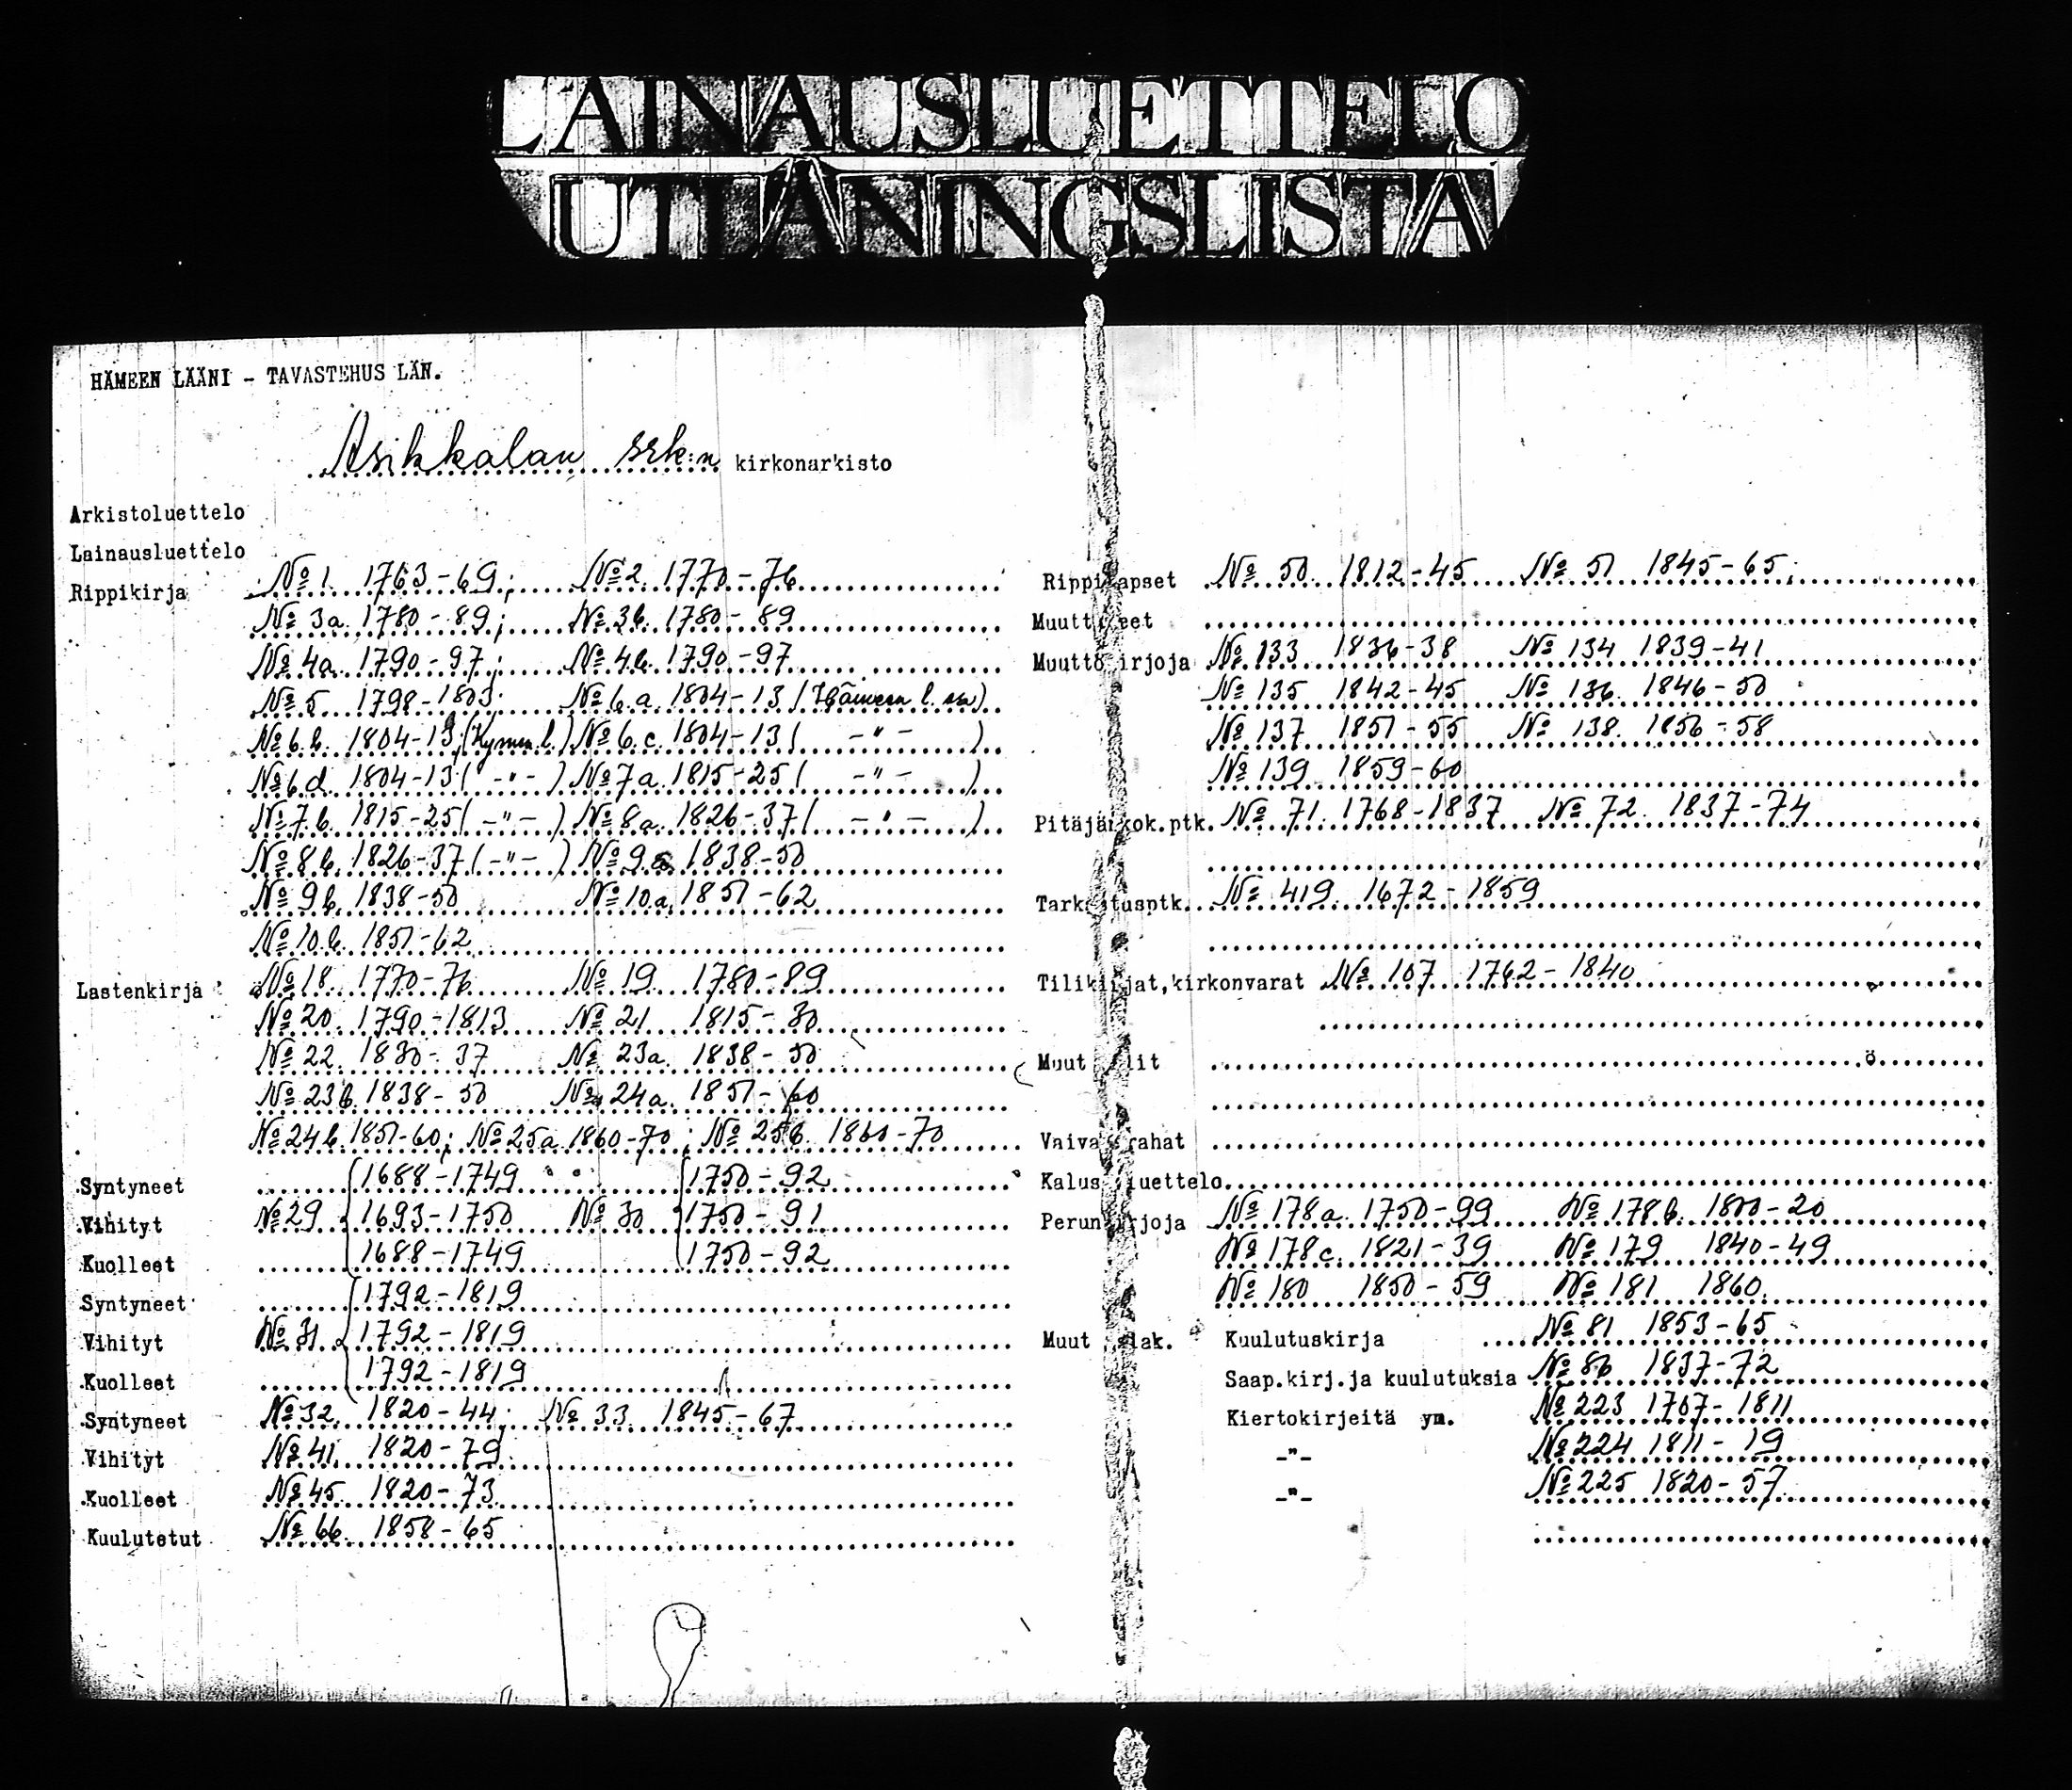 LAINAUSLUETTELO
UTLÅNINGSLISTA
HÄMEEN LÄÄNI - TAVASTEHUS LÄN.
Asikkalan srk:n kirkonarkisto
Arkistoluettelo
Lainausluettelo
Rippikirja № 1. 1763-69; № 2. 1770-76
№ 3a. 1780-89; № 3b. 1780-89
№ 4a. 1790-97; № 4b. 1790-97
№ 5 1798-1803; № 6.a. 1804-13 (Hämeen l. )
№ 6.b. 1804-13 (Kymen l.) № 6.c. 1804-13 ( -"- )
№ 6d. 1804-13 ( -"- ) № 7a. 1815-25 ( -"- )
№ 7.b. 1815-25 ( -"- ) № 8a. 1826-37 ( -"- )
№ 8b. 1826-37 ( -"- ) № 9.a 1838-50
№ 9b. 1838-50 № 10.a. 1851-62
№ 10.b. 1851-62
Lastenkirja № 18. 1770-76 № 19. 1780-89
№ 20. 1790-1813 № 21 1815-30
№ 22. 1830-37 № 23a. 1838-50
№ 23b. 1838-50 № 24a. 1851-60
№ 24b. 1851-60; № 25a. 1860-70; № 25b. 1860-70
Syntyneet 1688-1749 1750-92
Vihityt № 29 1693-1750 № 30 1750-91
Kuolleet 1688-1749 1750-92
Syntyneet 1792-1819
Vihityt № 31 1792-1819
Kuolleet 1792-1819
Syntyneet № 32. 1820-44; № 33. 1845-67
Vihityt № 41. 1820-79
Kuolleet № 45. 1820-73
Kuulutetut № 66. 1858-65
Rippilapset № 50. 1812-45 № 51 1845-65;
Muuttaneet
Muuttokirjoja № 133 1836-38 № 134 1839-41
№ 135 1842-45 № 136. 1846-50
№ 137 1851-55 № 138. 1856-58
№ 139 1859-60
Pitäjänkok.ptk. № 71. 1768-1837 № 72. 1837-74
Tarkastusptk. № 419. 1672-1859
Tilikirjat, kirkonvarat № 107 1762-1840
Muut tilit
Vaivaisrahat
Kalustoluettelo
Perunkirjoja № 178a. 1750-99 № 178b. 1800-20
№ 178c. 1821-39 № 179 1840-49
№ 180 1850-59 № 181 1860.
Muut asiak. Kuulutuskirja № 81 1853-65
Saap.kirj.ja kuulutuksia № 86 1837-72
Kiertokirjeitä ym. № 223 1707-1811
-"- № 224 1811-19
-"- № 225 1820-57